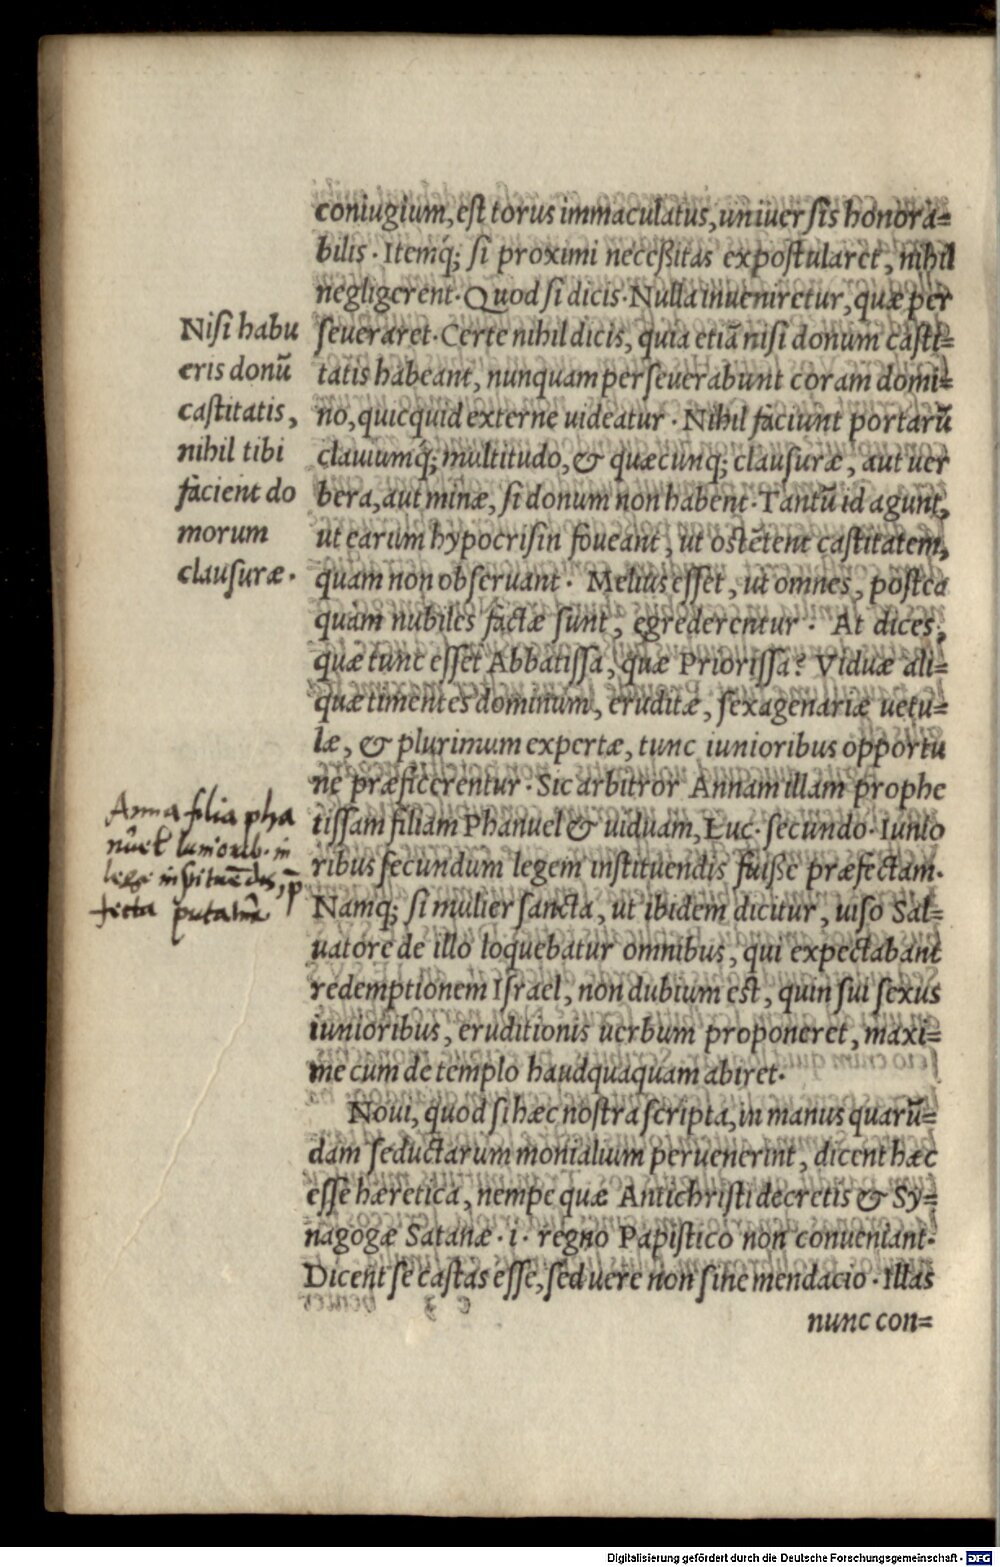 coniugium, est torus immaculatus, uniuersis honora=
bilis. Itemq́; si proximi necessitas expostularet, nihil
negligerent. Quod si dicis. Nulla inueniretur, quæ per
seueraret. Certe nihil dicis, quia etiā nisi donum casti=
tatis habeant, nunquam perseuerabunt coram domi=
no, quicquid externe uideatur. Nihil faciunt portarū
clauiumq́; multitudo, & quæcunq; clausuræ, aut uer
bera, aut minæ, si donum non habent. Tantū id agunt,
ut earum hypocrisin foueant, ut ostētent castitatem,
quam non obseruant. Melius esset, ut omnes, postea
quàm nubiles factæ sunt, egrederentur. At dices,
quæ tunc esset Abbatissa, quæ Priorissa? Viduæ ali=
quæ timentes dominum, eruditæ, sexagenariæ uetu=
læ, & plurimum expertæ, tunc iunioribus opportu
ne præficerentur. Sic arbitror Annam illam prophe
tissam filiam Phanuel & uiduam, Luc. secundo. Iunio
ribus secundum legem instituendis fuisse præfectam.
Namq; si mulier sancta, ut ibidem dicitur, uiso Sal=
uatore de illo loquebatur omnibus, qui expectabant
redemptionem Israel, non dubium est, quin sui sexus
iunioribus, eruditionis uerbum proponeret, maxi=
me cum de templo haudquaquam abiret.
Noui, quod si hæc nostra scripta, in manus quarū=
dam seductarum monialium peruenerint, dicent hæc
esse hæretica, nempe quæ Antichristi decretis & Sy=
nagogæ Satanæ. i. regno Papistico non conueniant.
Dicent se castas esse, sed uere non sine mendacio. Illas
nunc con=
Nisi habu
eris donū
castitatis,
nihil tibi
facient do
morum
clausuræ.
Anna filia pha
nuel Iuniorib. in
lege
fecta putatur
Digitalisierung gefördert durch die Deutsche Forschungsgemeinschaft - DFG